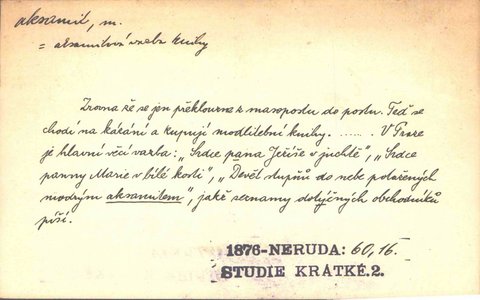 aksamit, m.
= aksamitová vazba knihy
Zrovna že se jen překlouzne z masopustu do postu. Teď se
chodí na kázání a kupují modlitební knihy. ...... V Praze
je hlavní věcí vazba: „Srdce pana Ježíše v juchtě", „Srdce
panny Marie v bílé kosti", „Devět stupňů do nebe potažených
modrým aksamitem", jakž seznamy dotyčných obchodníků
píší.
1876-NERUDA: 60,16.
STUDIE KRÁTKÉ.2.